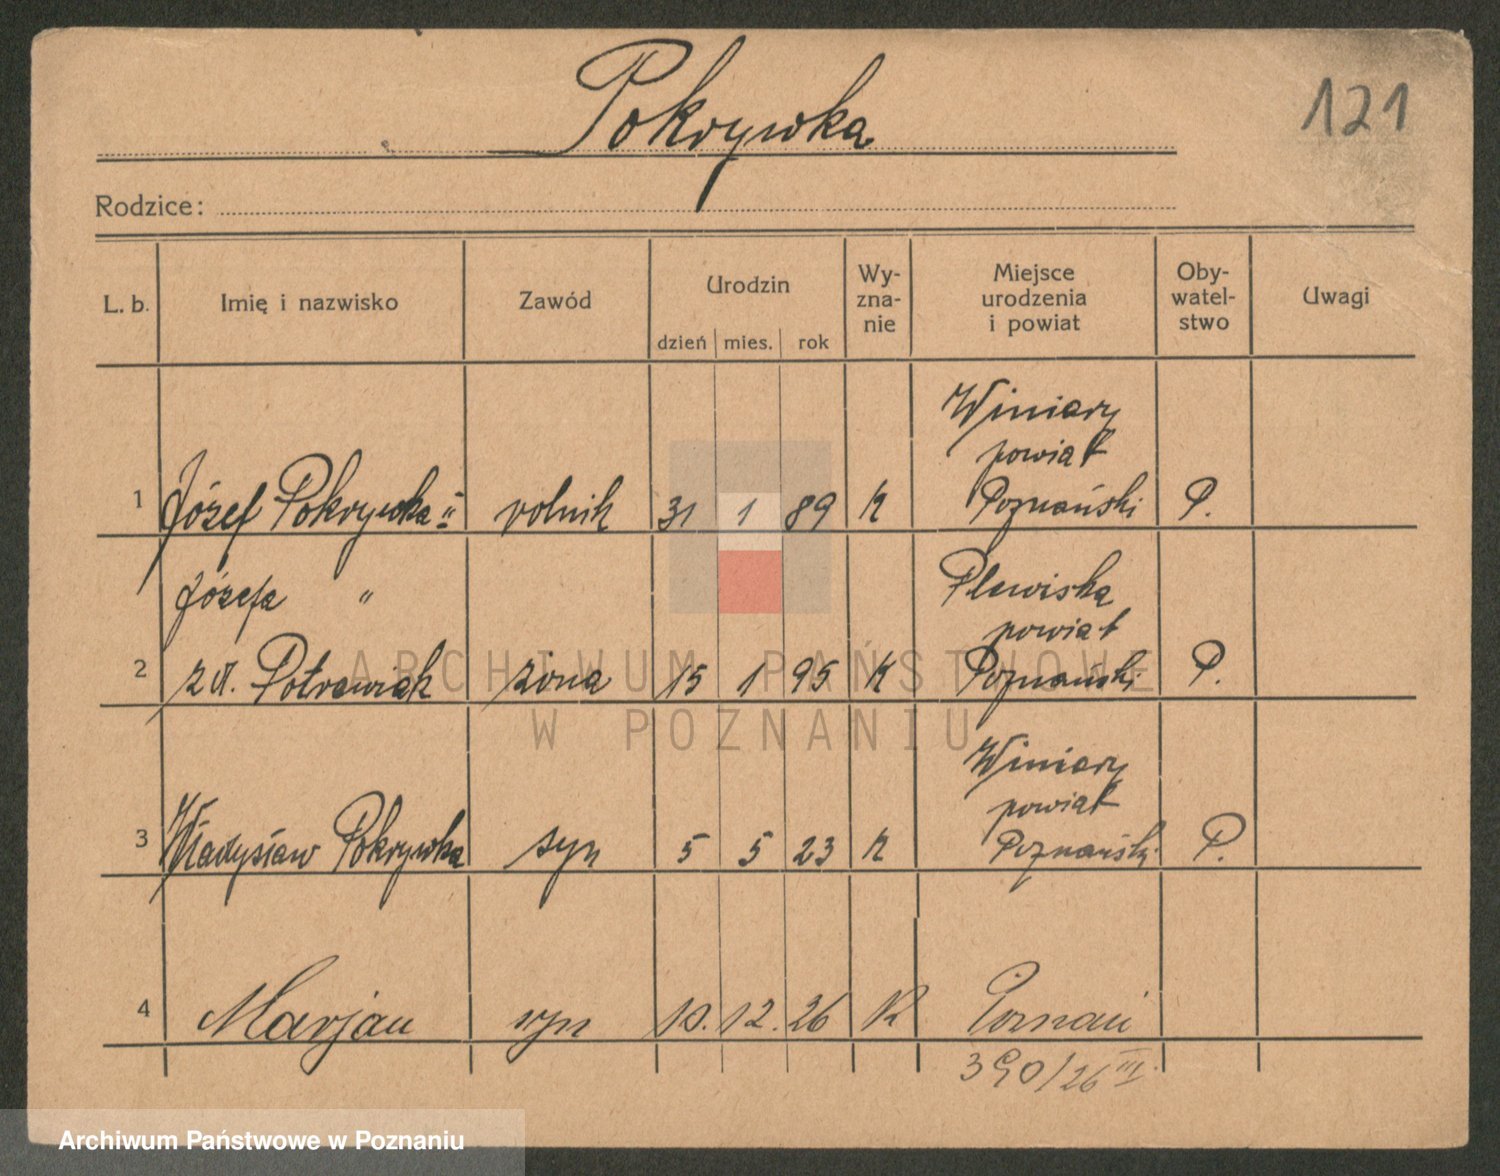 Pokrywka
121
Rodzice:
L. b. Imię i nazwisko Zawód Urodzin dzień mies. rok Wy-zna-nie Miejsce urodzenia i powiat Oby-watel-stwo Uwagi
Winiary
powiat
1 Józef Pokrywka " rolnik 31 1 89 K Poznański P.
Józefa " Plewiska
powiat
2 zd. Potrawiak żona 15 1 95 K Poznański P.
Winiary
powiat
3 Władysław Pokrywka syn 5 5 23 K Poznański P.
4 Marjan syn 10. 12. 26 K Poznań
390/26 III.
ARCHIWUM PAŃSTWOWE
W POZNANIU
Archiwum Państwowe w Poznaniu